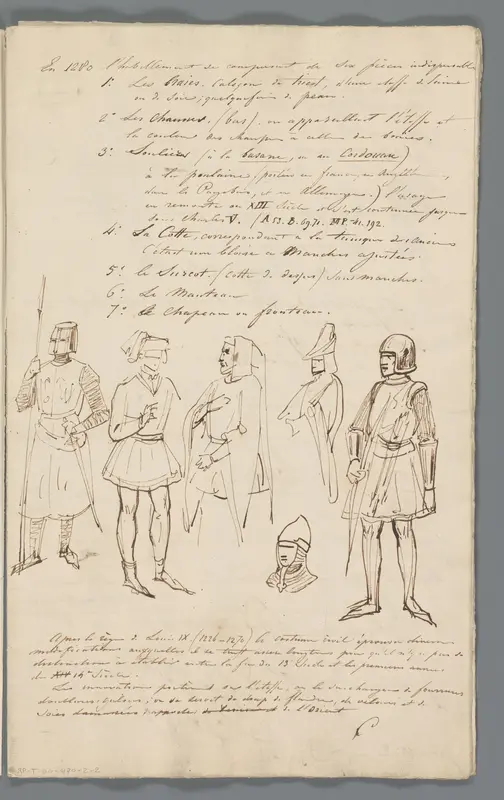 En 1280 l'habillement se composait de six pièces indispensables
1° Les Braies. Caleçon de tricot, d'une étoffe de laine
ou de soie; quelquefois de peau.
2° Les Chausses. (bas). on appareillait l'étoffe et
la couleur des chausses à celle des
3° Souliers (à la basane, ou au Cordouan)
à la poulaine (portées en france, en Angleterre,
dans les Pays bas, et en Allemagne.) l'usage
en remonte au XIII Siècle et s'est continué jusque
sous Charles V.
4° La Cotte, correspondant à la tunique des anciens
C'était une blouse à Manches ajustées.
5° le Surcot, (Cotte de dessus) sans manches.
6° Le Manteau
7° le Chapeau ou fronteau.
Après le règne de Louis IX. (1226-1270) le costume civil éprouva diverses
modifications
distinction à établir entre la fin du 13 Siècle et les premières années
du XIV 14e Siècle.
Les innovations portèrent sur l'étoffe, on le surchargea de fourrures
de drap de flandre, de velours et de
Soies damassées de l'Orient